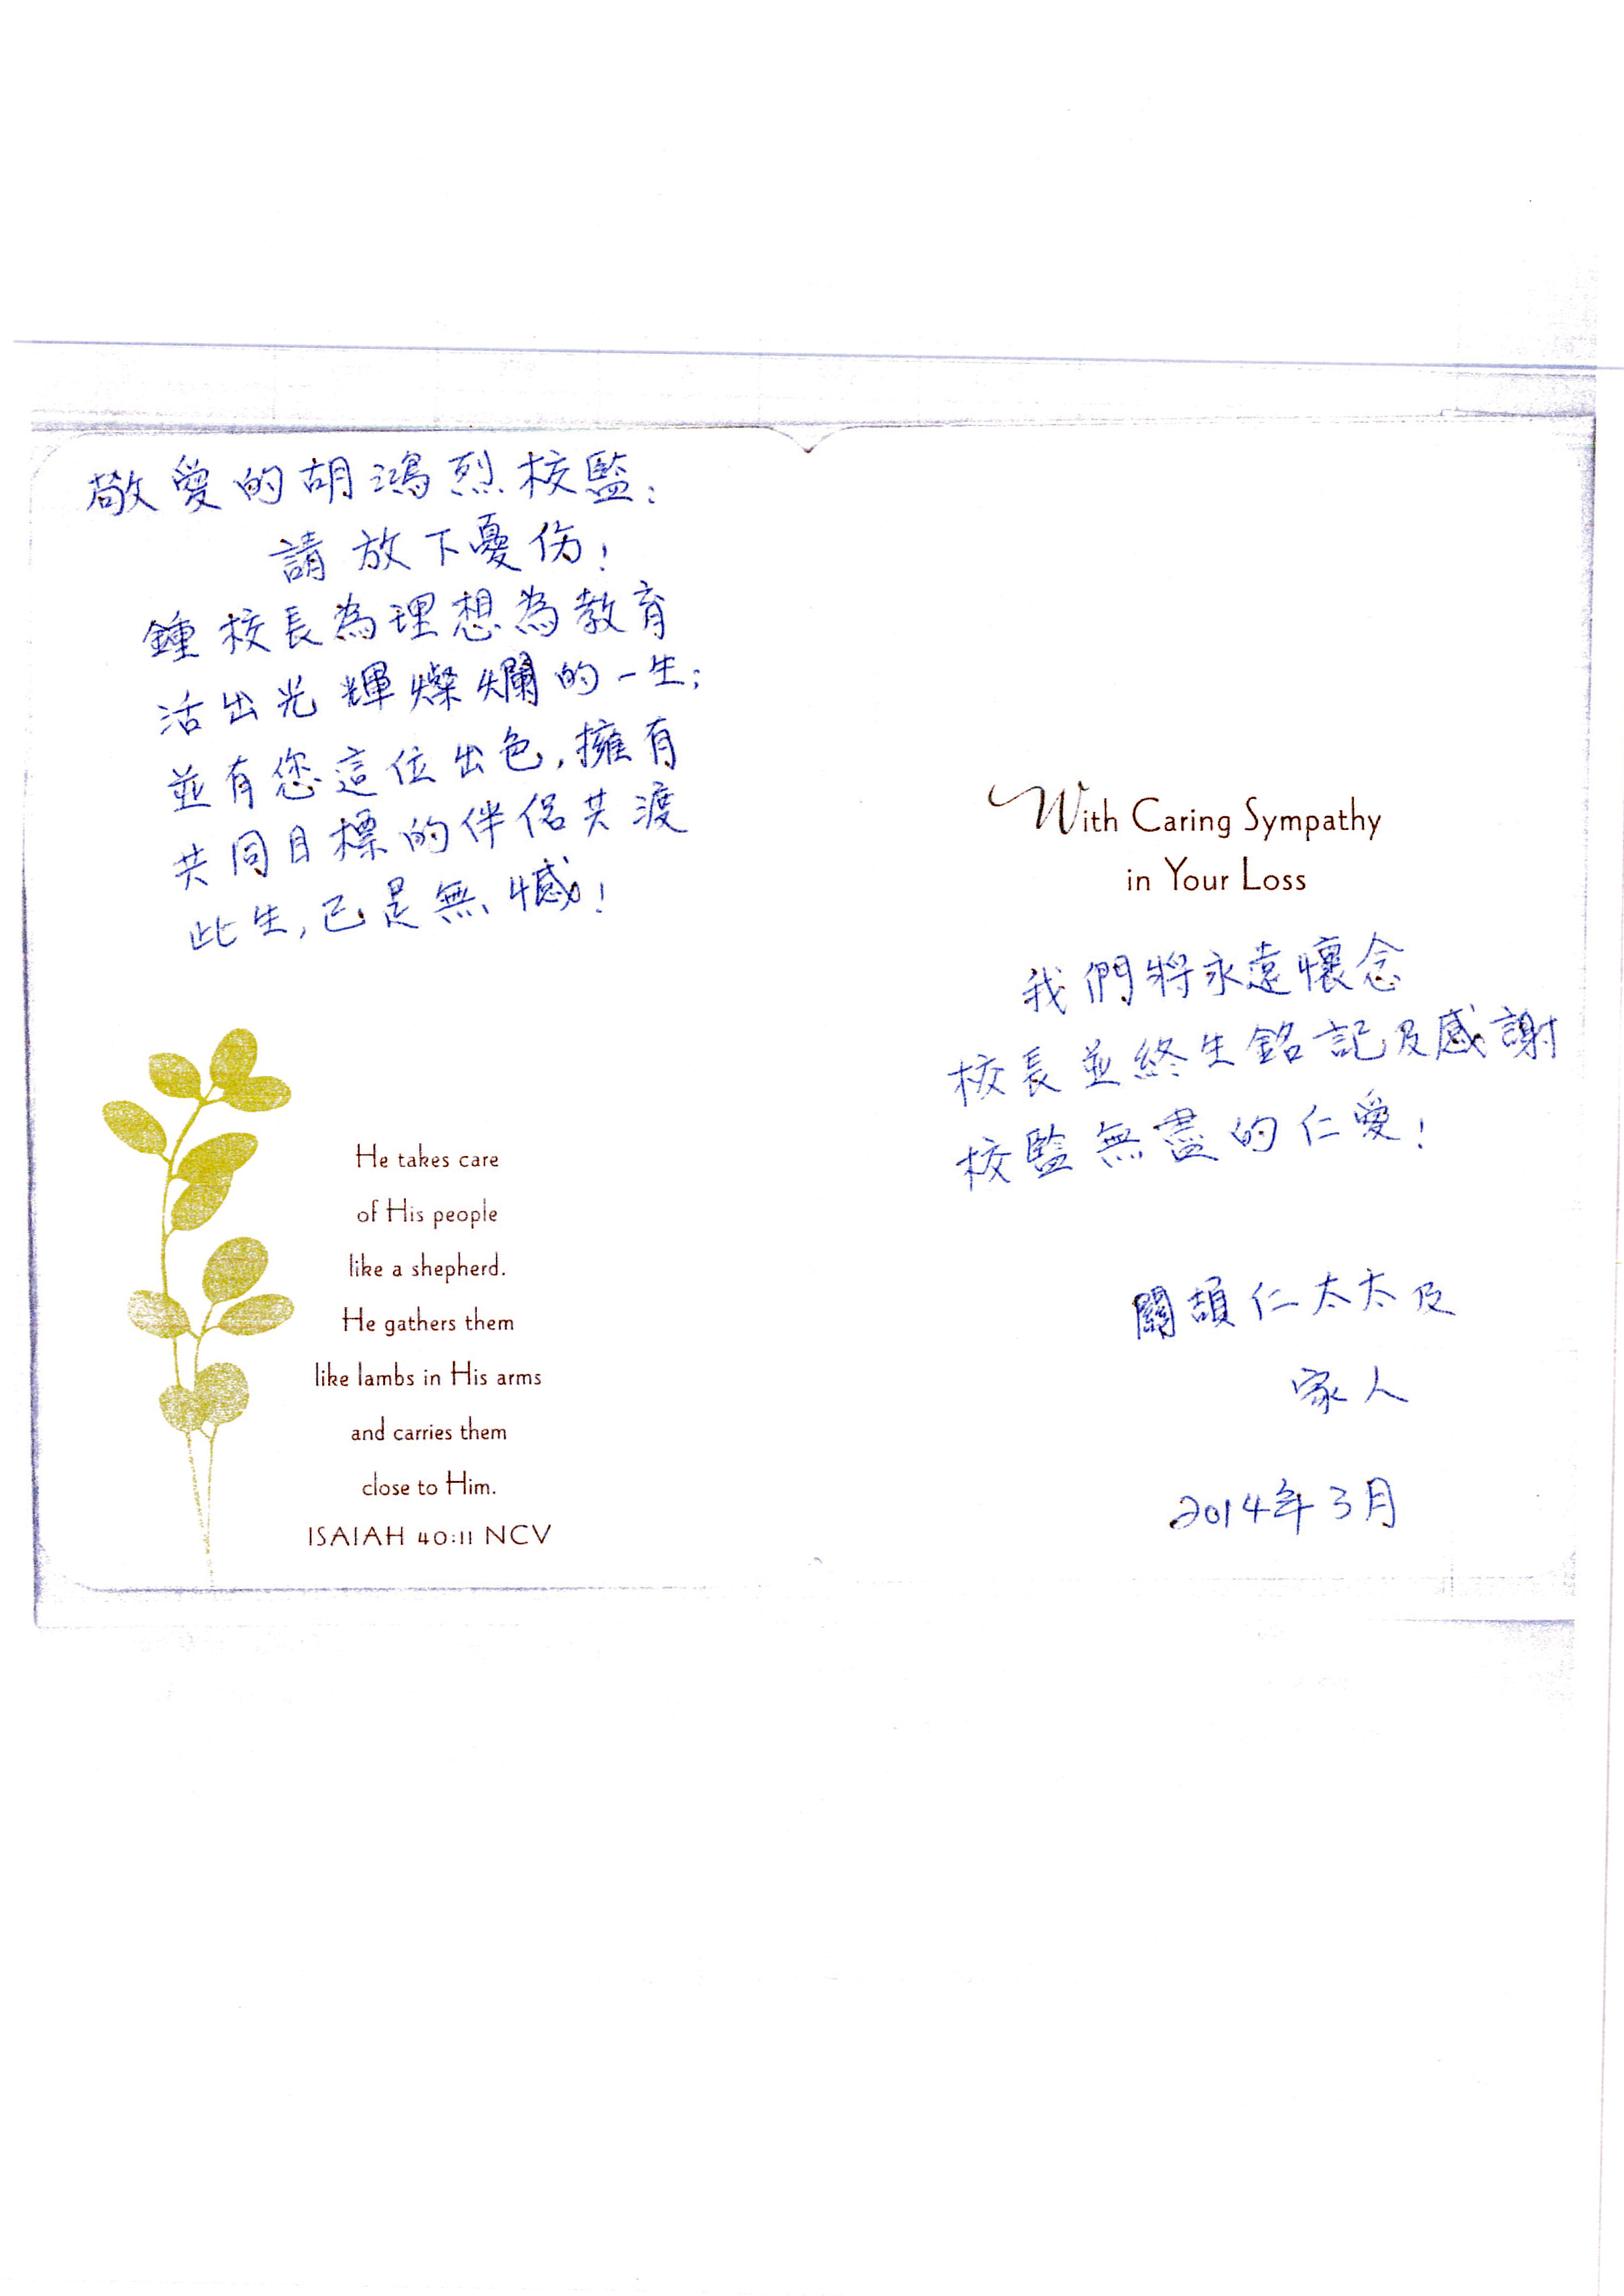 敬愛的胡鴻烈校監：
請放下憂伤！
鍾校長為理想為教育
活出光輝燦爛的一生；
並有您這位出色，擁有
共同目標的伴侶共渡
此生，已是無憾！
He takes care
of His people
like a shepherd.
He gathers them
like lambs in His arms
and carries them
close to Him.
ISAIAH 40:11 NCV
With Caring Sympathy
in Your Loss
我們將永遠懷念
校長並終生銘記及感謝
校監無盡的仁愛！
關頡仁太太及
家人
2014年3月